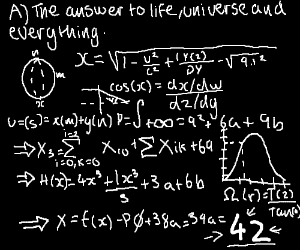 A) The answer to life, universe and
everything.
n
m
x
x = √1 - v²/c² + (y(2)/Dy - √9.1²
cos(x) = dx/dw / dz/dy
v = (s] = x(m) + y(n) P = ∫ +∞ = 9² + 6a + 9b
⇒ X₃ ∑ i=2 i=0, k=0 X₁₀ + ∑ Xik + 69
⇒ H(x) - 4x³ + 1x³/3 + 3a + 6b
Ω(r) = T(2)
⇒ X = f(x) - PØ + 38a = 39a =
→ 42 ←